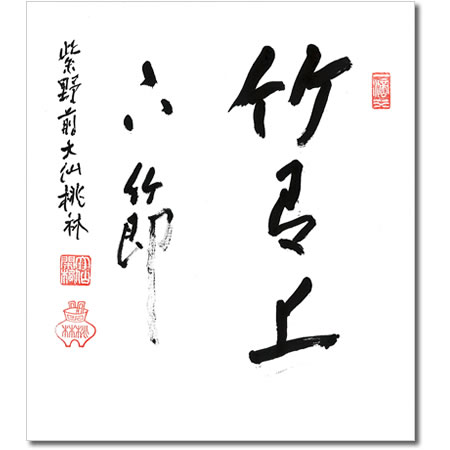 竹有上
下節
紫野前大仙桃林
桃林